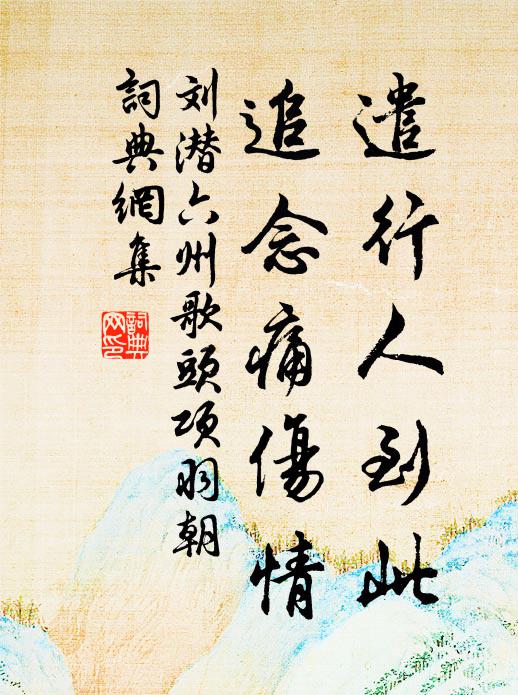 遣行人到此
追念痛傷情
刘潜六州歌頭項羽朝
詞典網集
詞典網印